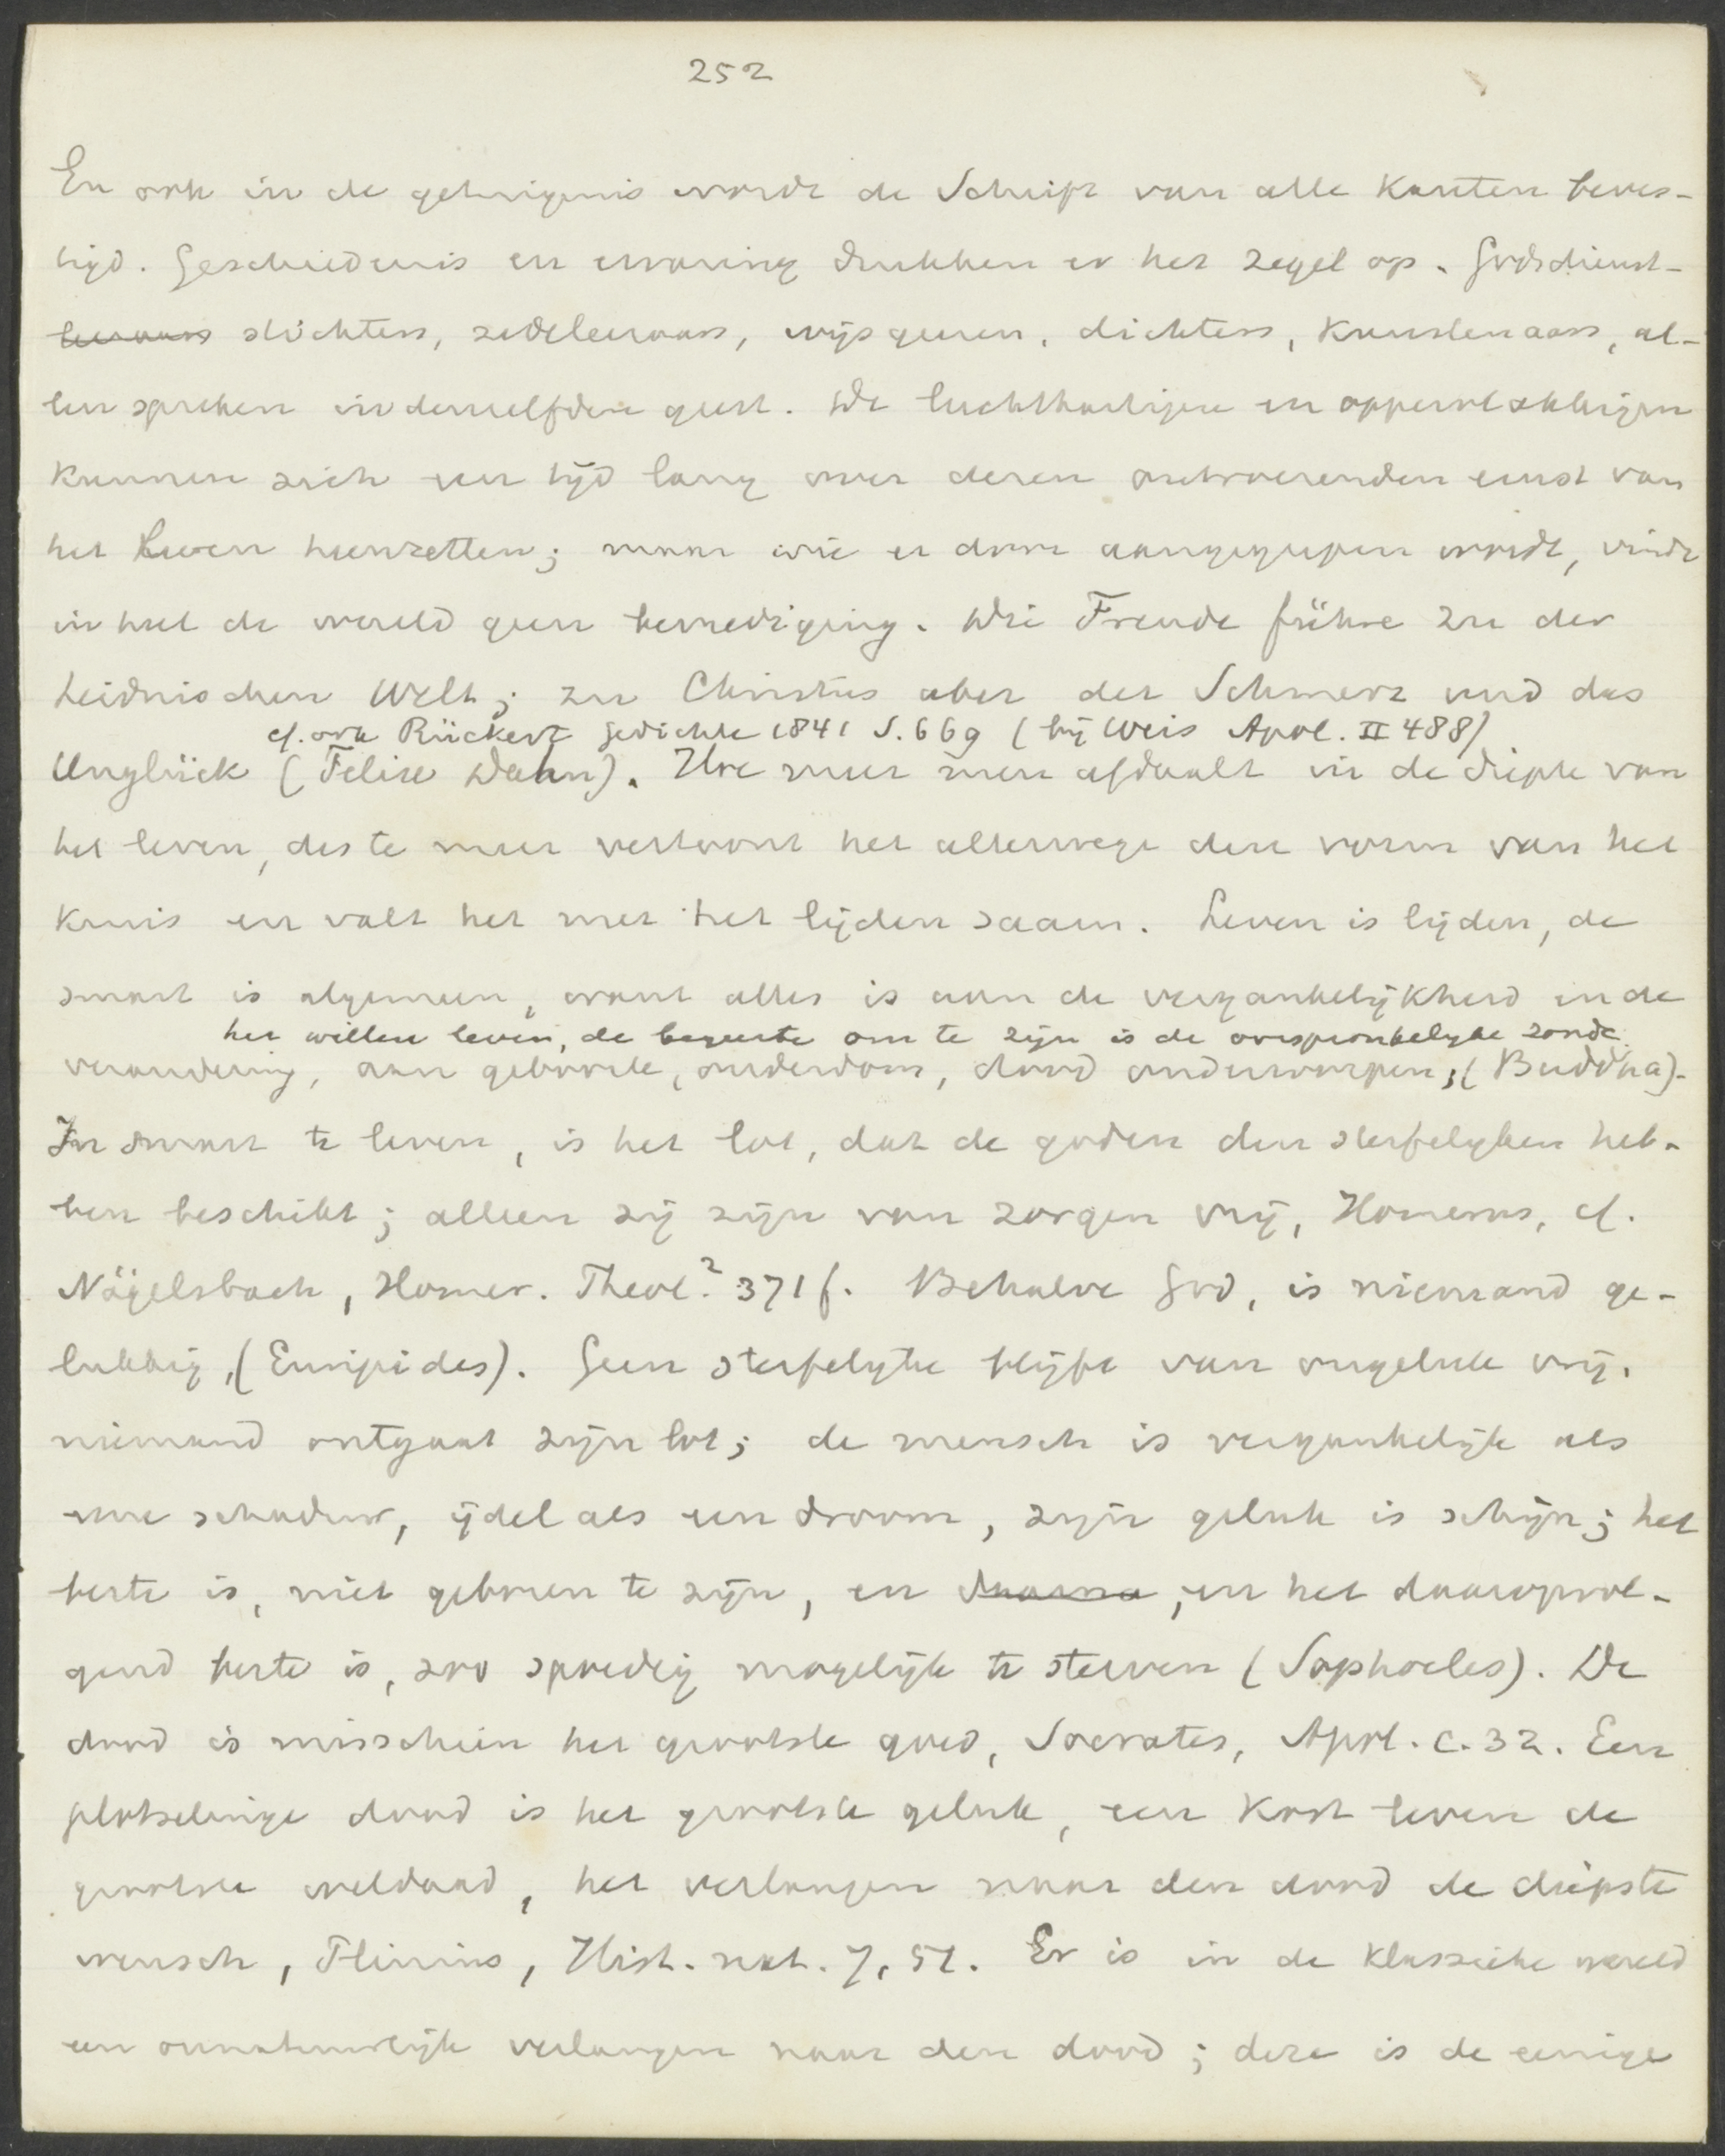 252
En ook in de getuigenis wordt de Schrift van alle kanten beves-
tigd. Geschiedenis en ervaring drukken er het zegel op. Godsdienst-
leeraars stichters, zedeleeraars, wijsgeeren, dichters, kunstenaars, al-
len spreken in denzelfden geest. De luchthartigen en oppervlakkigen
kunnen zich een tijd lang over dezen ontroerenden ernst van
het leven heenzetten; maar wie er door aangegrepen wordt, vindt
in heel de wereld geen bevrediging. Die Freude führe zu der
heidnischen Welt; zu Christus aber der Schmerz und das
cf. ook Rückert Gedichte 1841 S. 669 (bij Weis Apol. II 488)
Unglück (Felix Dahn). Hoe meer men afdaalt in de diepte van
het leven, des te meer vertoont het allerwege den vorm van het
kruis en valt het met het lijden saam. Leven is lijden, de
smart is algemeen, want alles is aan de vergankelijkheid en de
het willen leven, de begeerte om te zijn is de oorspronkelyke zonde
verandering, aan geboorte, ouderdom, dood onderworpen; (Buddha).
In smart te leven, is het lot, dat de goden den sterfelyken heb-
ben beschikt; alleen zij zijn van zorgen vrij, Homerus, cf.
Nägelsbach, Homer. Theol.² 371 f. Behalve God, is niemand ge-
lukkig, (Euripides). Geen sterfelyke blijft van ongeluk vrij,
niemand ontgaat zijn lot; de mensch is vergankelijk als
eene schaduw, ijdel als een droom, zijn geluk is schijn; het
beste is, niet geboren te zijn, en daarna, en het daaropvol-
gend beste is, zoo spoedig mogelijk te sterven (Sophocles). De
dood is misschien het grootste goed, Socrates, Apol. c. 32. Een
plotselinge dood is het grootste geluk, een kort leven de
grootste weldaad, het verlangen naar den dood de diepste
wensch, Plinius, Hist. nat. 7, 51. Er is in de klassieke wereld
een onnatuurlijk verlangen naar den dood; deze is de eenige